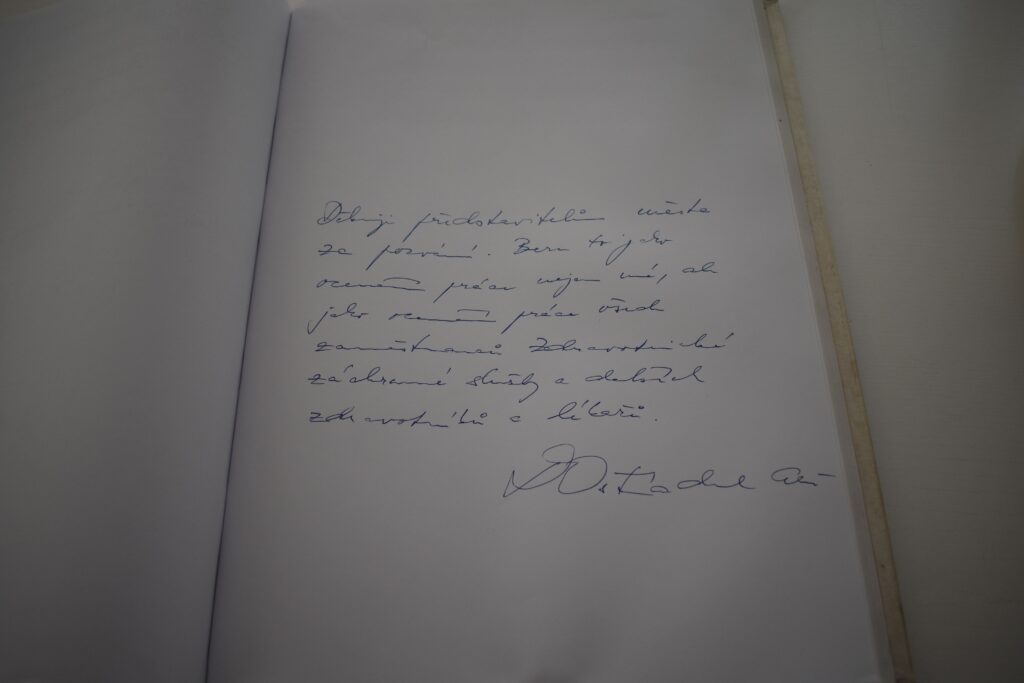 Děkuji představitelům města
za pozvání. Beru to jako
ocenění práce nejen mé, ale
jako ocenění práce všech
zaměstnanců Zdravotnické
záchranné služby a dalších
zdravotníků a lékařů.